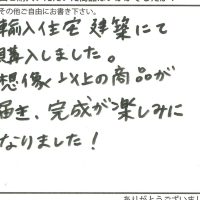 その他ご自由にお書き下さい。
輸入住宅建築にて
購入しました。
想像以上の商品が
届き、完成が楽しみに
なりました!
ありがとうございまし